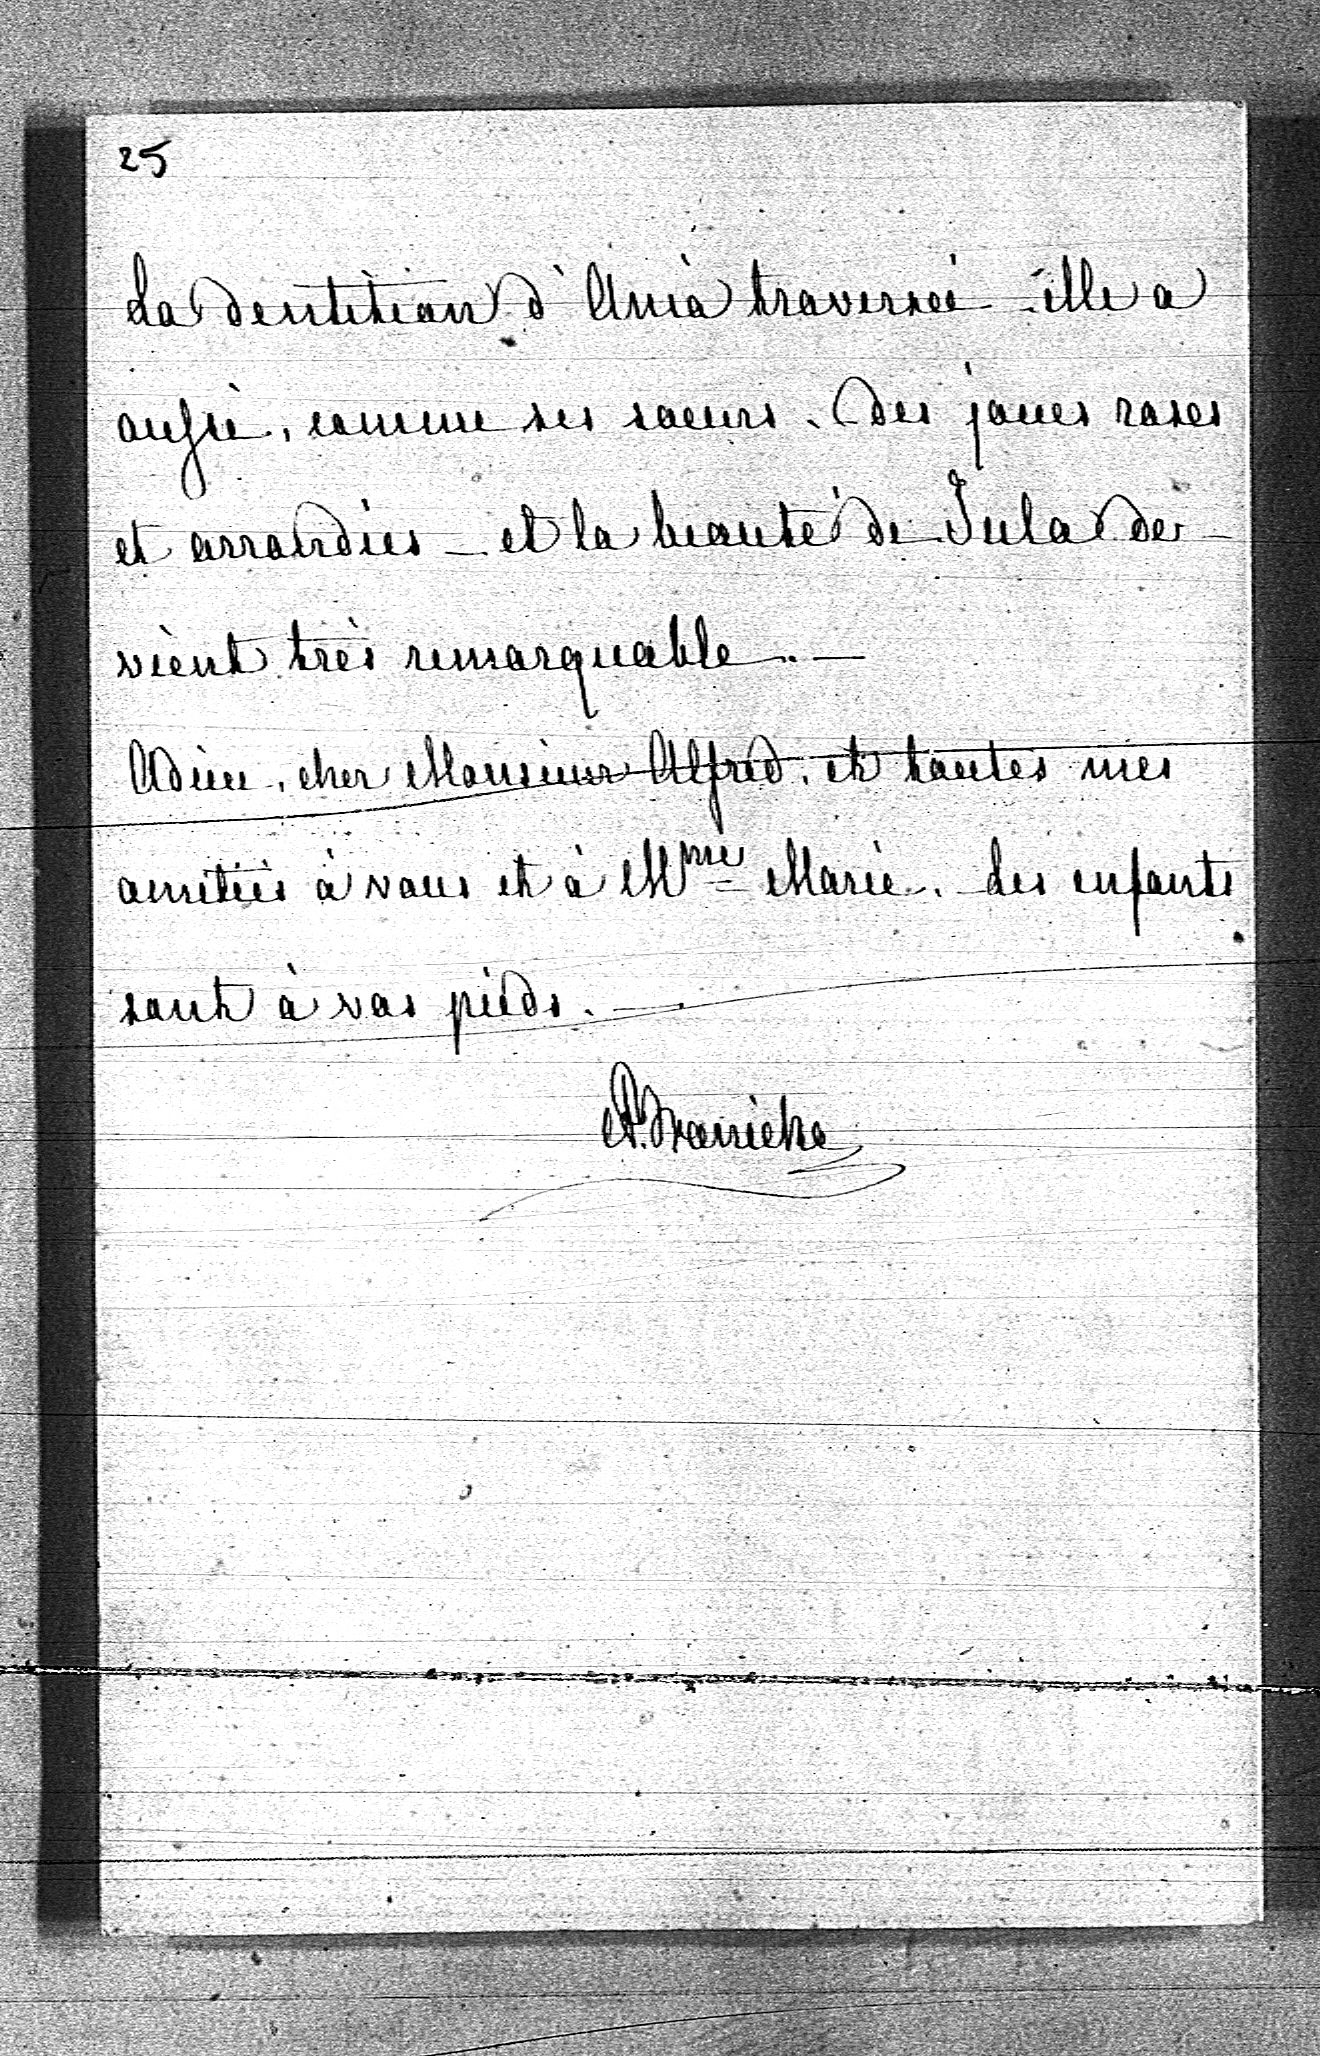 25
La dentition d'Ania traversée - elle a
aussi, comme ses soeurs, des joues roses
et arrondies - et la beauté de Jula de-
vient très remarquable. -
Adieu, cher Monsieur Alfred, et toutes mes
amitiés à vous et à Mme Marie. Les enfants
sont à vos pieds. -